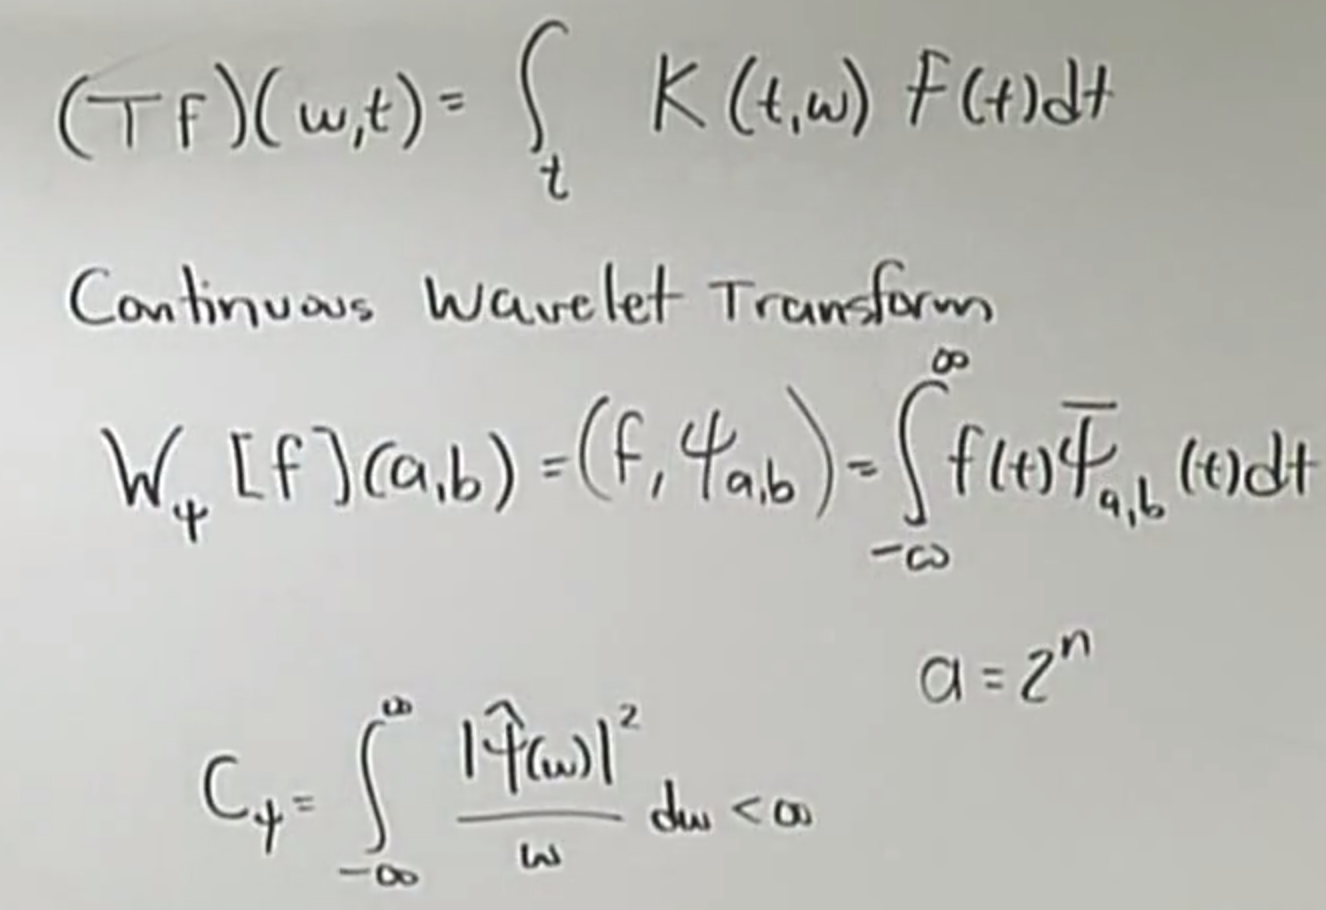 (Tf)(w,t) = ∫_t K(t,w) f(t)dt
Continuous Wavelet Transform
W_ψ [f](a,b) = (f, ψ_{a,b}) = ∫_{-∞}^{∞} f(t) \overline{ψ}_{a,b} (t)dt
a = 2^n
C_ψ = ∫_{-∞}^{∞} |\hat{ψ}(w)|^2 / w dw < ∞